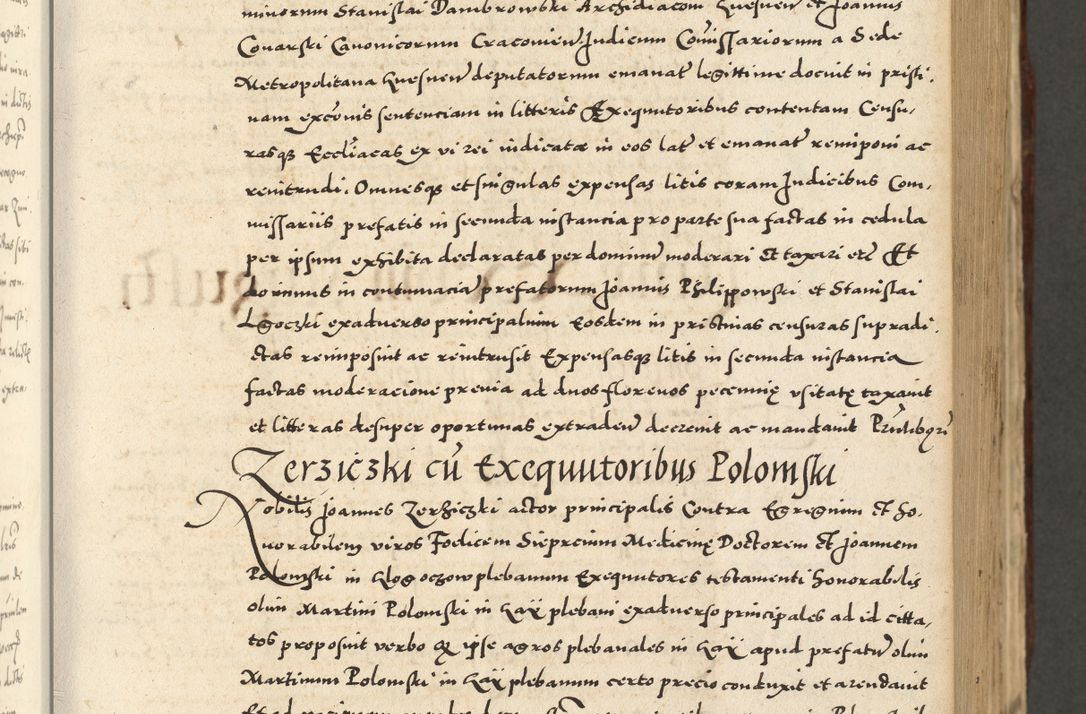 minorum Stanislai Dambrowski Archidiaconi Gnesnen et Joannis
Conarski Canonicorum Cracovien Judicum Comissariorum a Sede
Metropolitana Gnesnen deputatorum emanat legittime docuit in pristi,
nam excõnis sentenciam in litteris Exequutoribus contentam Censu,
rasq Eccliacas ex vi rei iudicatæ in eos lat et emanat reimponi ac
reintrudi. Omnesqȝ et singulas expensas litis coram Judicibus Com,
missariis prefatis in secunda instancia pro parte sua factas in cedula
per ipsum exhibita declaratas per dominum moderari et taxari etc Et
dominus in contumaciã prefatorum Joannis Philippowski et Stanislai
Lgoczki exadverso principalium Eosdem in pristinas censuras supradi,
ctas reimposuit ac reintrusit Expensasqȝ litis in secunda instancia
factas moderacione previa ad duos florenos pecunię usitatę taxavit
et litteras desuper oportunas extraden decrevit ac mandavit
Zerziczki cũ Exequutoribus Polomski
Nobilis Joannes Zerziczki actor principalis Contra Egregium et Ho,
norabilem viros Foelicem Sieprcium Medicinę Doctorem et Joannem
Polomski in Glogoczow plebanum Exequutores testamenti honorabilis
olim Martini Polomski in Gaÿ plebani exadverso principales ad id citta,
tos proposuit verbo Q ipse agros plebanales in Gaÿ apud prefatũ olim
Martinum Polomski in Gaÿ plebanum certo precio conduxit et arendavit